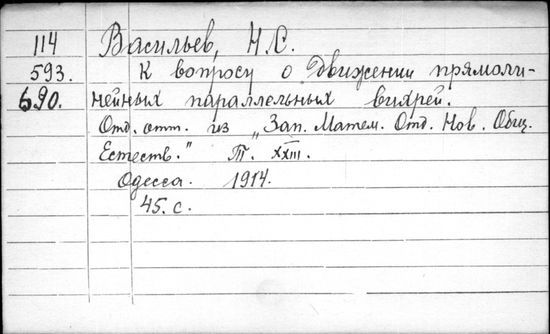 114 Васильев, Н.С.
593. К вопросу о движении прямоли-
690. нейных параллельных вихрей.
Отд. отт. из „Зап. Матем. Отд. Нов. Общ.
Естеств." Т. XXIII.
Одесса. 1914.
45. с.